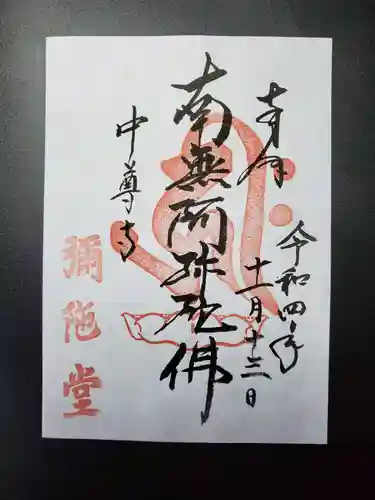 奉拝
令和四年
十一月十三日
南無阿弥陀佛
中尊寺
彌陀堂